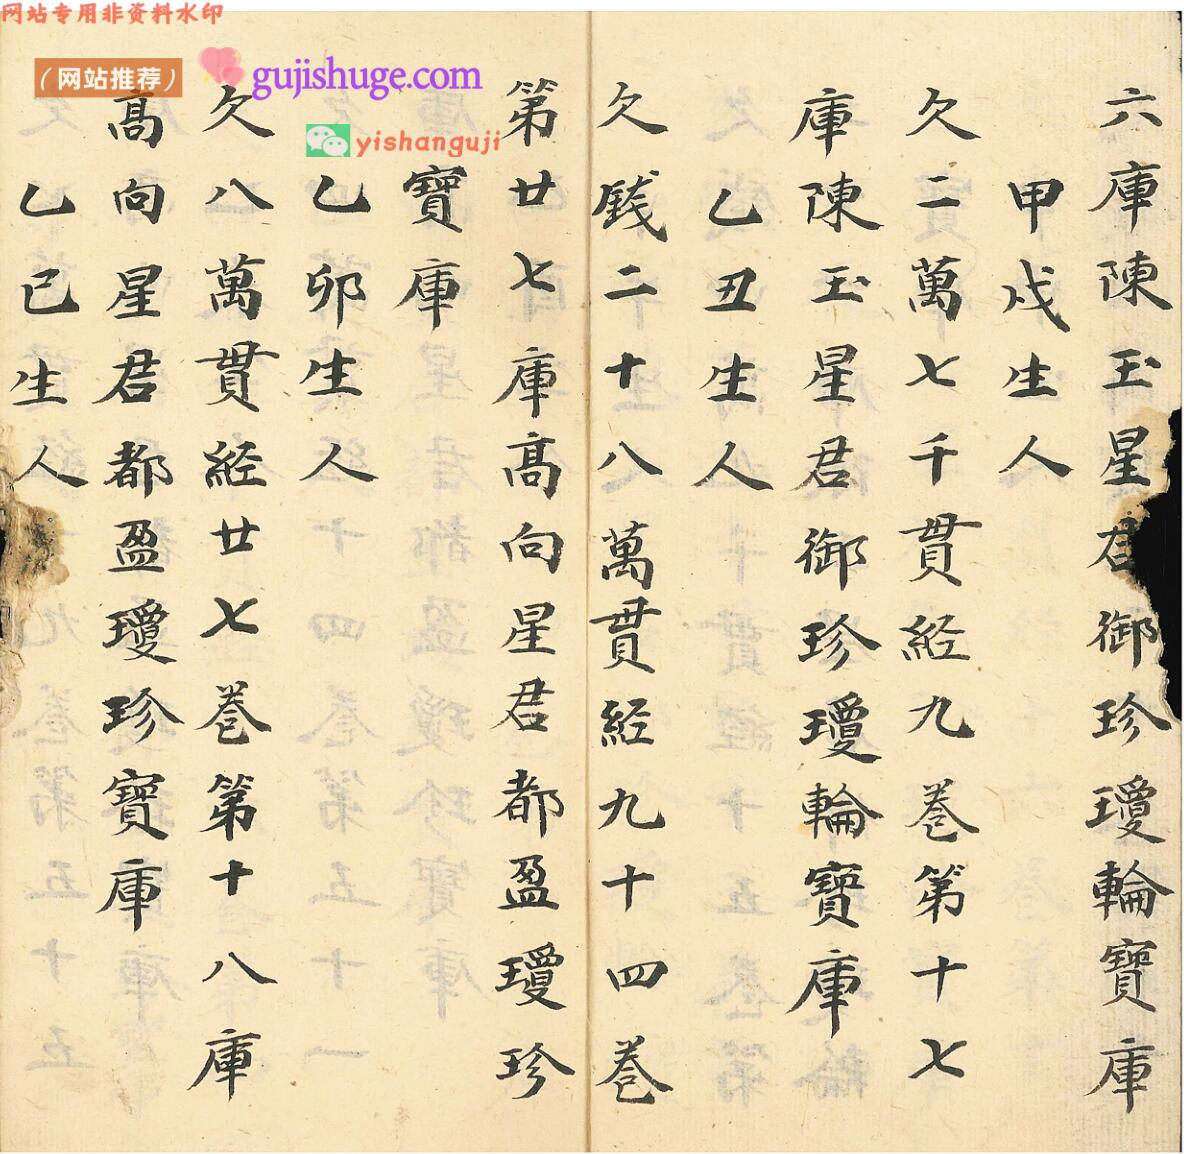 网站专用非资料水印
（网站推荐）
gujishuge.com
yishanguji
六庫陳玉星君御珍瓊輪寶庫
甲戌生人
欠二萬七千貫経九巻第十七
庫陳玉星君御珍瓊輪寶庫
乙丑生人
欠錢二十八萬貫経九十四巻
第廿七庫髙向星君都盈瓊珍
寶庫
乙卯生人
欠八萬貫経廿七巻第十八庫
髙向星君都盈瓊珍寶庫
乙巳生人